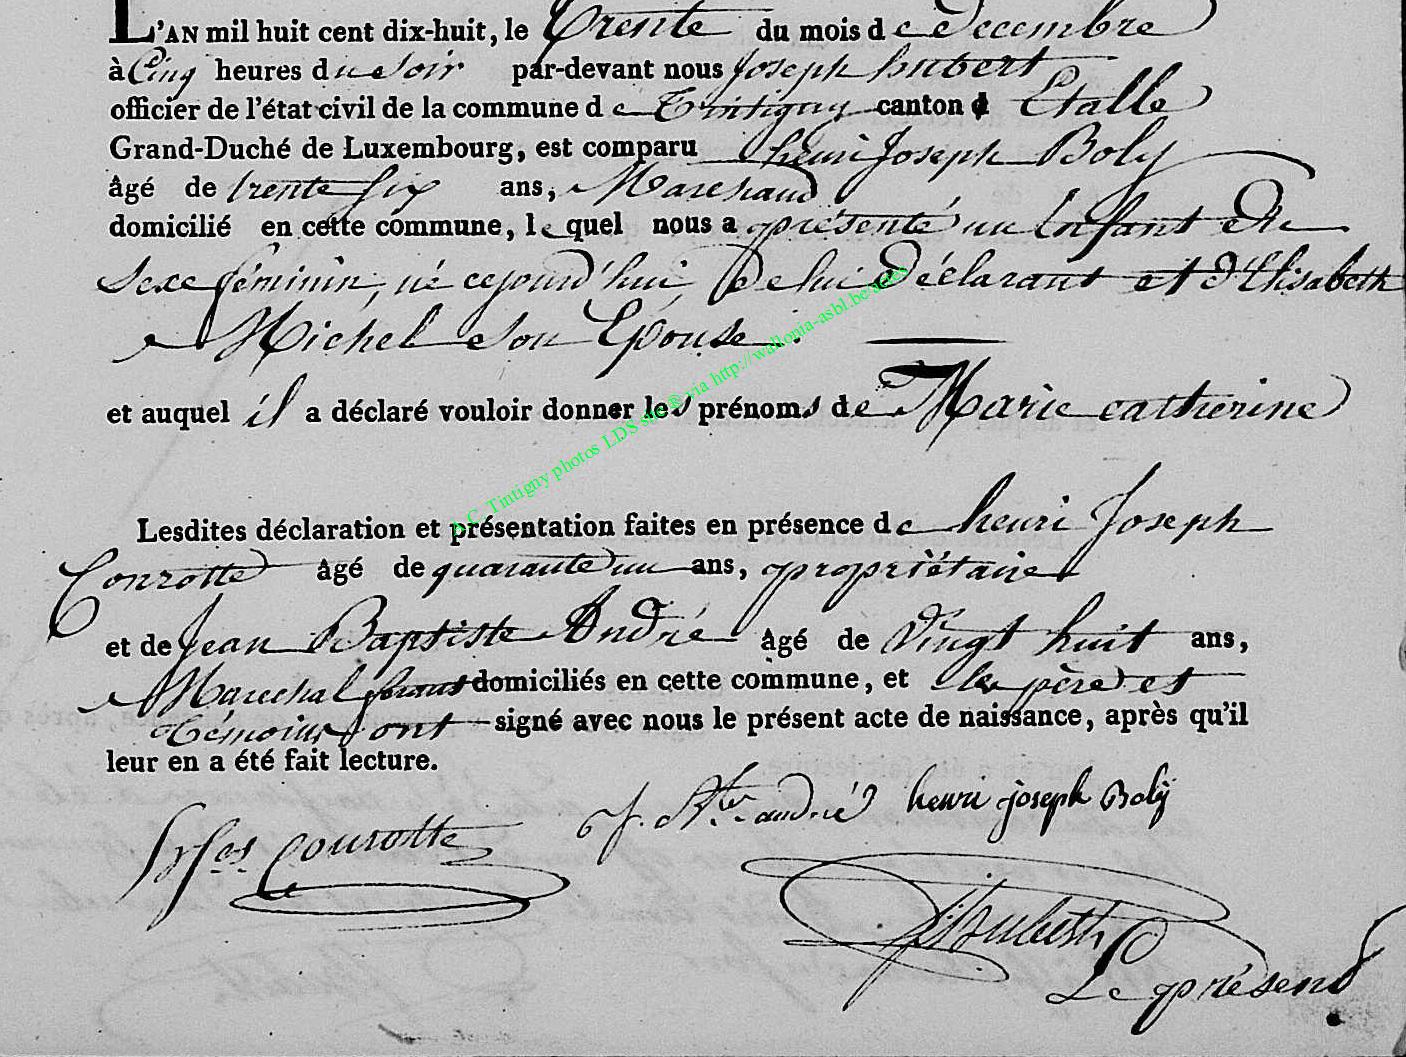 L'AN mil huit cent dix-huit, le trente du mois de Decembre
à Cinq heures du Soir par-devant nous Joseph hubert
officier de l'état civil de la commune de Tintigny canton d Etalle
Grand-Duché de Luxembourg, est comparu henri Joseph Boly
âgé de trente six ans, Marchand
domicilié en cette commune, lequel nous a présenté un Enfant du
Sexe féminin, né cejourd'hui, De lui Déclarant et d'Elisabeth
Michel Son Epouse.
et auquel il a déclaré vouloir donner les prénoms de Marie catherine
Lesdites déclaration et présentation faites en présence de henri Joseph
Conrotte âgé de quarante un ans, propriétaire
et de Jean Baptiste André âgé de Vingt huit ans,
Marechal ferrant domiciliés en cette commune, et les père et
témoins ont signé avec nous le présent acte de naissance, après qu'il
leur en a été fait lecture.
Conrotte J. Bte andrié henri joseph Bolÿ
J Hubert
Le présend
A.C. Tintigny photos LDS site ® via http://wallonia-asbl.be/actes